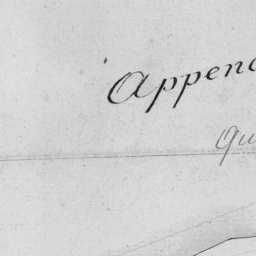 Appen
Qu